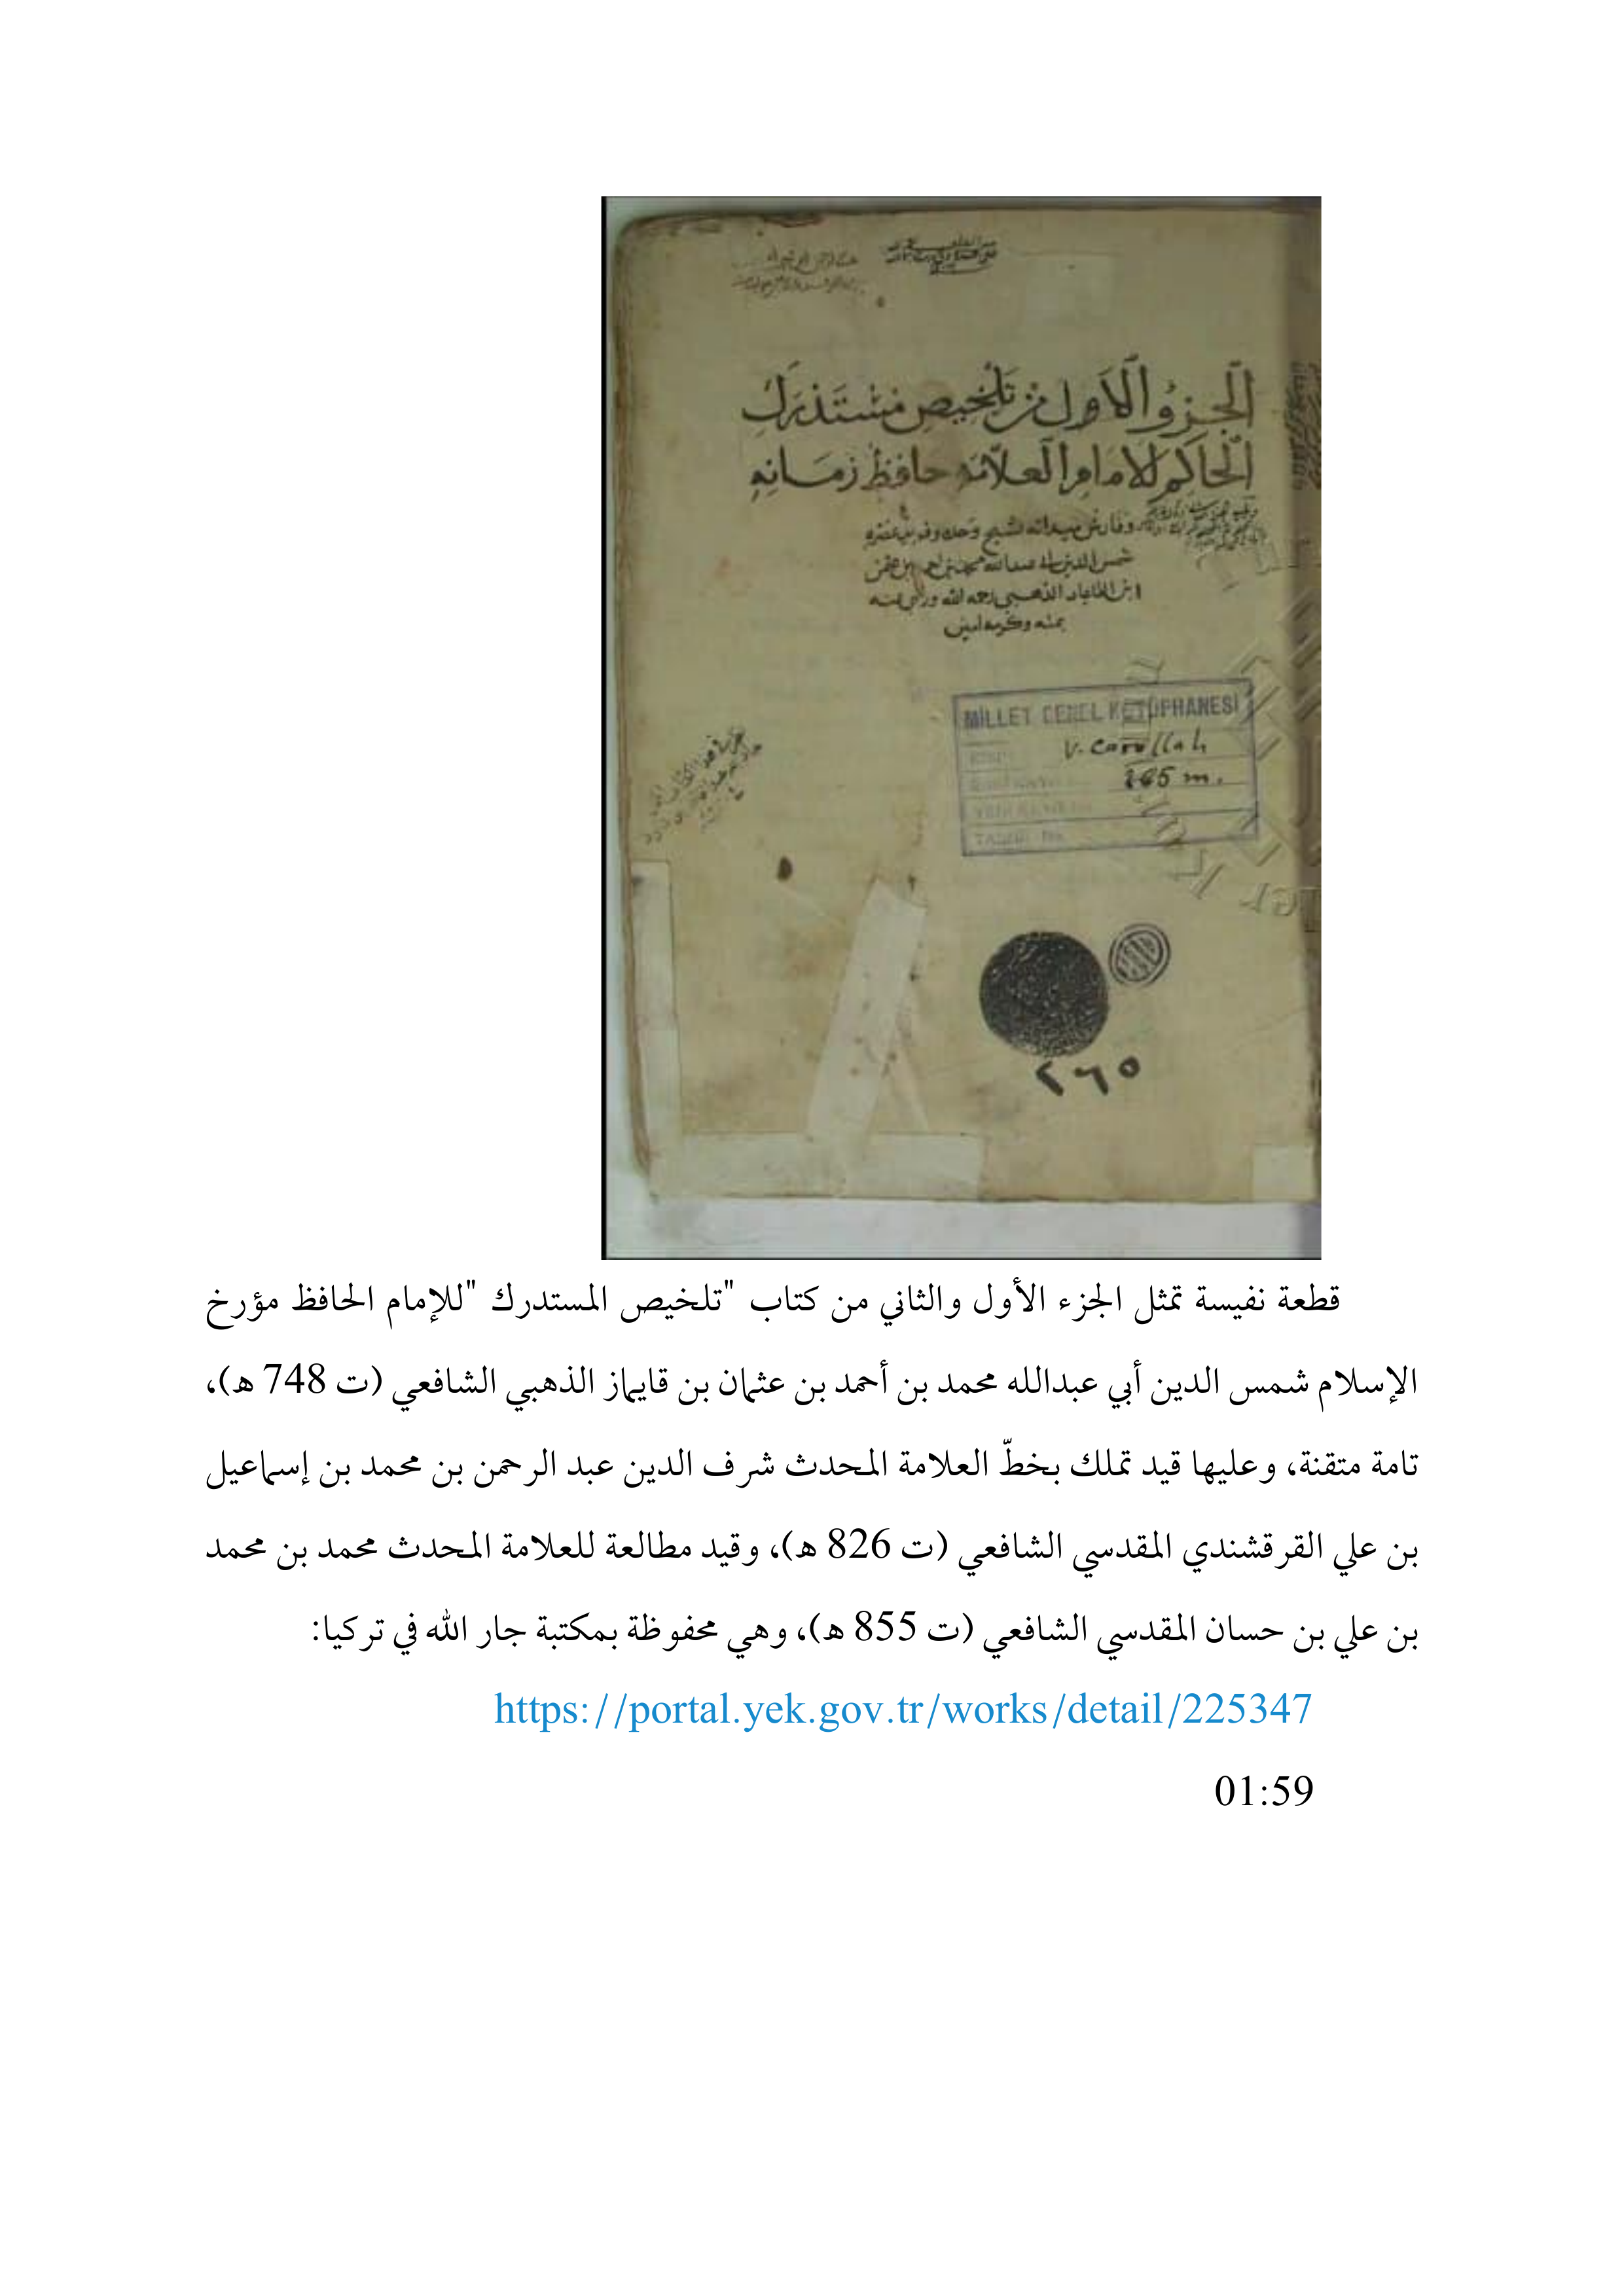 الجزو الاول من تلخيص مستدرك
الحاكم للامام العلامة حافظ زمانه
وفارس ميدانه نسيج وحده وفريد عصره
شمس الدين ابي عبد الله محمد بن احمد بن عثمن
ابن قايماز الذهبي رحمه الله ورضي عنه
بمنه وكرمه امين
MİLLET GENEL KÜTÜPHANESİ
V. Carullah
265 m.
٢٦٥
قطعة نفيسة تمثل الجزء الأول والثاني من كتاب "تلخيص المستدرك "للإمام الحافظ مؤرخ
الإسلام شمس الدين أبي عبدالله محمد بن أحمد بن عثمان بن قايماز الذهبي الشافعي (ت 748 ه)،
تامة متقنة، وعليها قيد تملك بخطّ العلامة المحدث شرف الدين عبد الرحمن بن محمد بن إسماعيل
بن علي القرقشندي المقدسي الشافعي (ت 826 ه)، وقيد مطالعة للعلامة المحدث محمد بن محمد
بن علي بن حسان المقدسي الشافعي (ت 855 ه)، وهي محفوظة بمكتبة جار الله في تركيا:
https://portal.yek.gov.tr/works/detail/225347
01:59